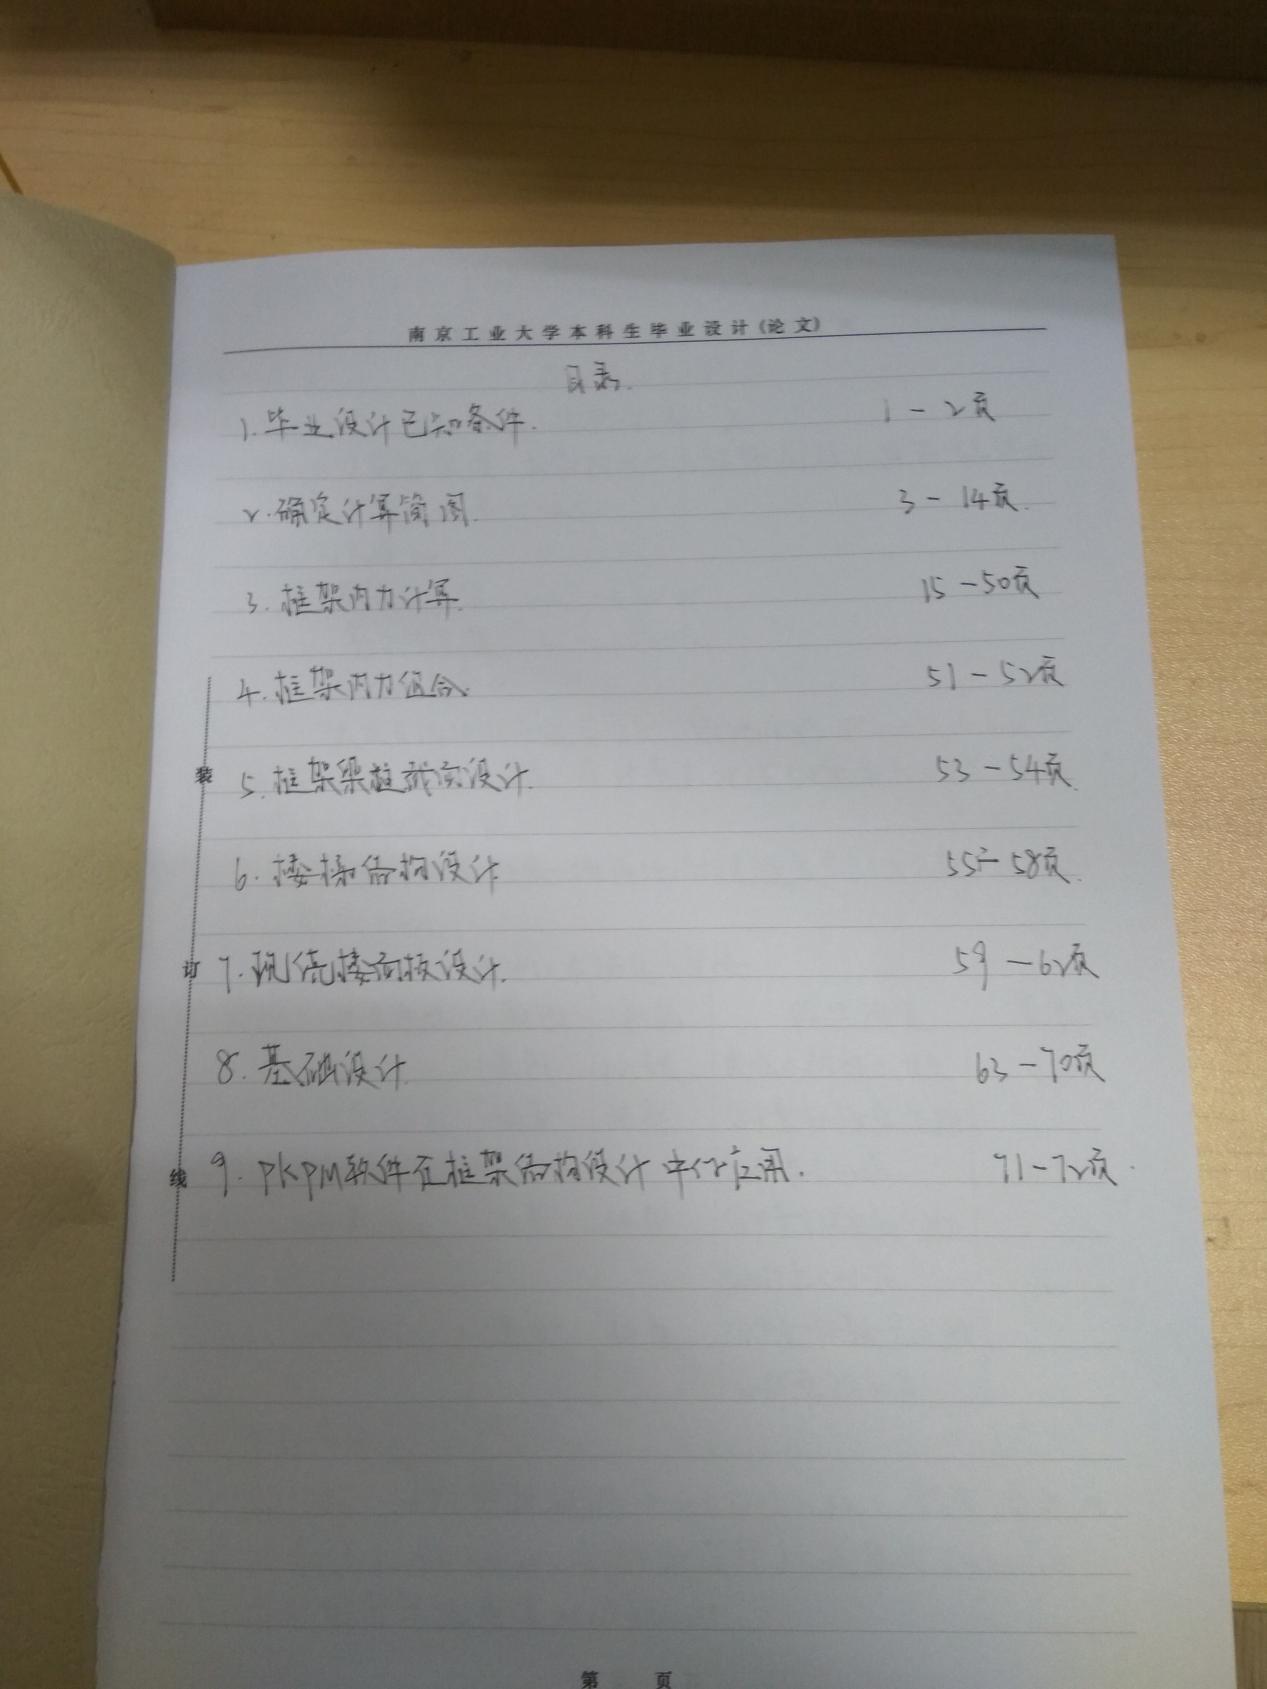 南京工业大学本科生毕业设计(论文)
目录.
1.毕业设计已知条件. 1-2页
2.确定计算简图. 3-14页.
3.框架内力计算. 15-50页
4.框架内力组合. 51-52页
5.框架梁柱截面设计. 53-54页.
6.楼梯结构设计 55-58页.
7.现浇楼面板设计. 59-62页
8.基础设计. 63-70页
9.PKPM软件在框架结构设计中的应用. 71-72页.
装
订
线
第 页